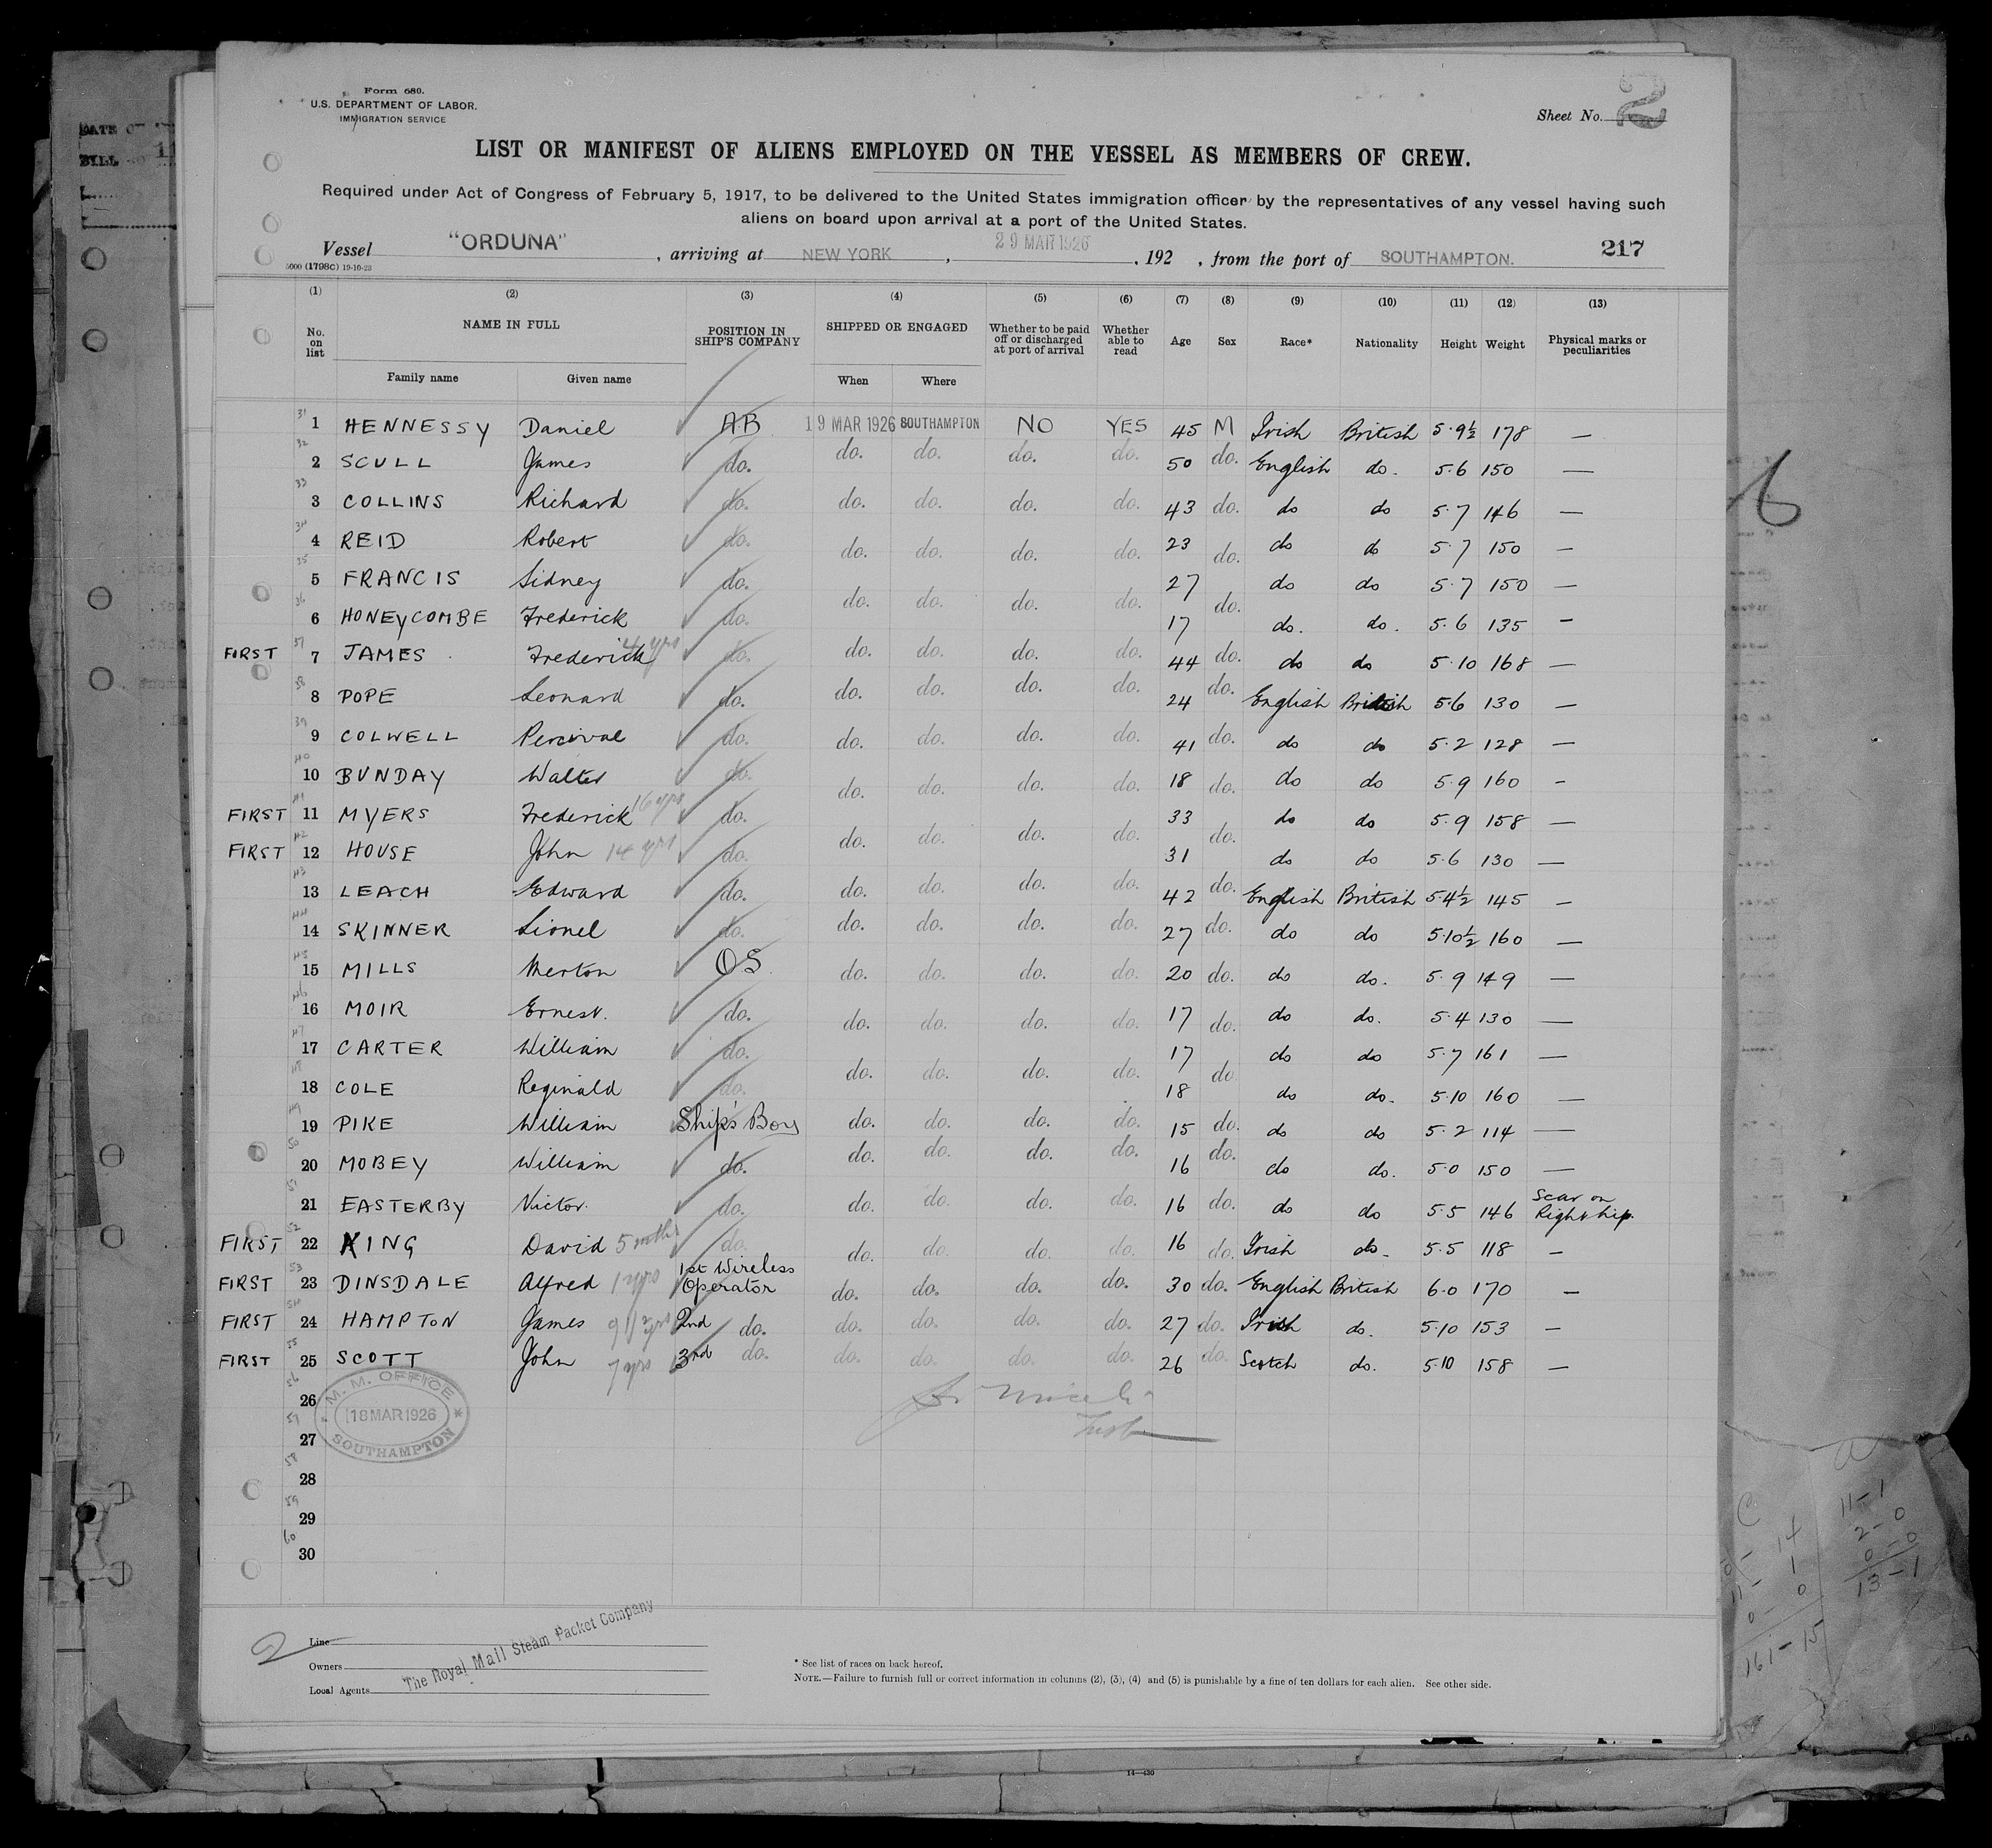 Form 680.
U.S. DEPARTMENT OF LABOR.
IMMIGRATION SERVICE
Sheet No. 2
LIST OR MANIFEST OF ALIENS EMPLOYED ON THE VESSEL AS MEMBERS OF CREW.
Required under Act of Congress of February 5, 1917, to be delivered to the United States immigration officer by the representatives of any vessel having such
aliens on board upon arrival at a port of the United States.
Vessel "ORDUNA", arriving at NEW YORK, 29 MAR 1926, 192 , from the port of SOUTHAMPTON. 217
5000 (1798C) 19-10-23
(1) (2) (3) (4) (5) (6) (7) (8) (9) (10) (11) (12) (13)
No. on list NAME IN FULL POSITION IN SHIP'S COMPANY SHIPPED OR ENGAGED Whether to be paid off or discharged at port of arrival Whether able to read Age Sex Race* Nationality Height Weight Physical marks or peculiarities
Family name Given name When Where
31 1 HENNESSY Daniel AB 19 MAR 1926 SOUTHAMPTON NO YES 45 M Irish British 5·9½ 178 —
32 2 SCULL James do. do. do. do. do. 50 do. English do. 5·6 150 —
33 3 COLLINS Richard do. do. do. do. do. 43 do. do do 5·7 146 —
34 4 REID Robert do. do. do. do. do. 23 do. do do 5·7 150 —
35 5 FRANCIS Sidney do. do. do. do. do. 27 do. do do 5·7 150 —
36 6 HONEYCOMBE Frederick do. 17 do. do. 5·6 135 —
FIRST 37 7 JAMES Frederick 4 yrs do. do. do. do. do. 44 do. do do 5·10 168 —
38 8 POPE Leonard do. do. do. do. do. 24 do. English British 5·6 130 —
39 9 COLWELL Percival do. do. do. do. do. 41 do. do do 5·2 128 —
40 10 BUNDAY Walter do. do. do. do. do. 18 do. do do 5·9 160 —
FIRST 41 11 MYERS Frederick 16 yrs do. 33 do do 5·9 158 —
FIRST 42 12 HOUSE John 14 yrs do. do. do. do. do. 31 do. do do 5·6 130 —
43 13 LEACH Edward do. do. do. do. do. 42 do. English British 5·4½ 145 —
44 14 SKINNER Lionel do. do. do. do. do. 27 do. do do 5·10½ 160 —
45 15 MILLS Merton OS. do. do. do. do. 20 do. do do. 5·9 149 —
46 16 MOIR Ernest. do. do. do. do. do. 17 do. do do. 5·4 130 —
47 17 CARTER William do. 17 do do 5·7 161 —
48 18 COLE Reginald do. do. do. do. do. 18 do do do. 5·10 160 —
49 19 PIKE William Ship's Boy do. do. do. do. 15 do. do do 5·2 114 —
50 20 MOBEY William do. do. do. do. do. 16 do. do do. 5·0 150 —
51 21 EASTERBY Victor. do. do. do. do. do. 16 do. do do 5·5 146 Scar on Right hip.
FIRST 52 22 KING David 5 mths do. do. do. do. do. 16 do. Irish do. 5·5 118 —
FIRST 53 23 DINSDALE Alfred 1 yrs 1st Wireless Operator do. do. do. do. 30 do. English British 6·0 170 —
FIRST 54 24 HAMPTON James 9 1/2 yrs 2nd do. do. do. do. do. 27 do. Irish do. 5·10 153 —
FIRST 55 25 SCOTT John 7 yrs 3rd do. do. do. do. do. 26 do. Scotch do. 5·10 158 —
56 26
57 27
58 28
59 29
60 30
M. M. OFFICE
18 MAR 1926
SOUTHAMPTON
2
Line
Owners
Local Agents
The Royal Mail Steam Packet Company
* See list of races on back hereof.
NOTE.—Failure to furnish full or correct information in columns (2), (3), (4) and (5) is punishable by a fine of ten dollars for each alien. See other side.
14—430
11-1
2-0
0-0
13-1
161-15